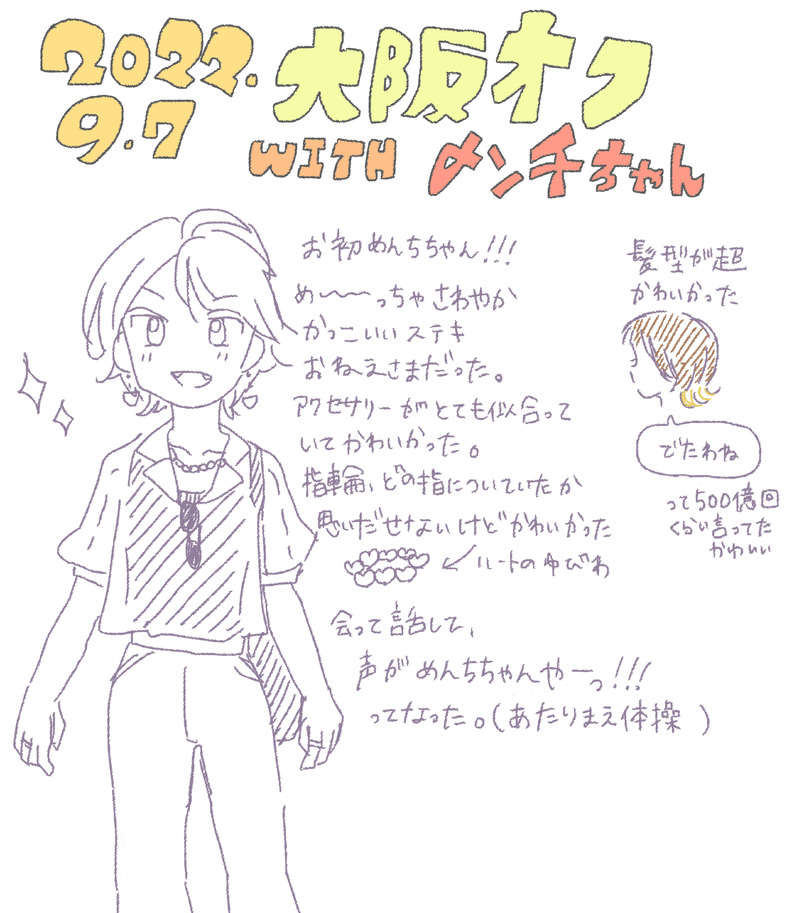 2022.
9.7
大阪オフ
WITH メンチちゃん
お初めんちちゃん!!!
め〜〜っちゃさわやか
かっこいいステキ
おねえさまだった。
アクセサリーがとても似合って
いてかわいかった。
指輪、どの指についていたか
思いだせないけどかわいかった
ハートのゆびわ
会って話して、
声がめんちちゃんやーっ!!!
ってなった。(あたりまえ体操)
髪型が超
かわいかった
でたわね
って500億回
くらい言ってた
かわいい